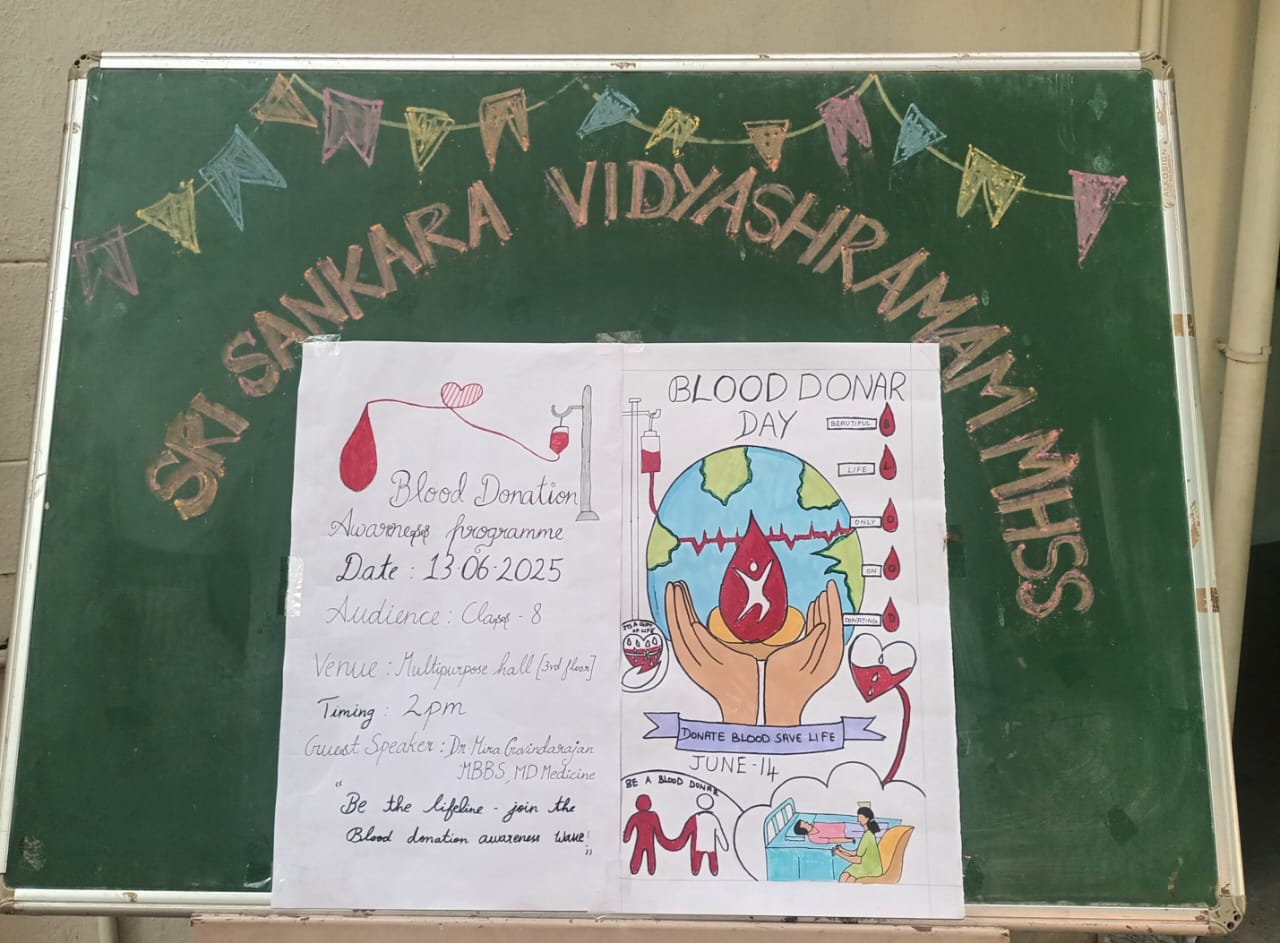 SRI SANKARA VIDYASHRAMAM MHSS
Blood Donation
Awarness programme
Date : 13.06.2025
Audience : Class - 8
Venue : Multipurpose hall [3rd floor]
Timing : 2pm
Guest Speaker : Dr Mira Govindarajan
MBBS, MD Medicine
"Be the lifeline - join the
Blood donation awareness wave!"
BLOOD DONAR
DAY
BEAUTIFUL B
LIFE L
ONLY O
ON O
DONATING D
ITS A GIFT
OF LIFE
DONATE BLOOD SAVE LIFE
JUNE-14
BE A BLOOD DONAR